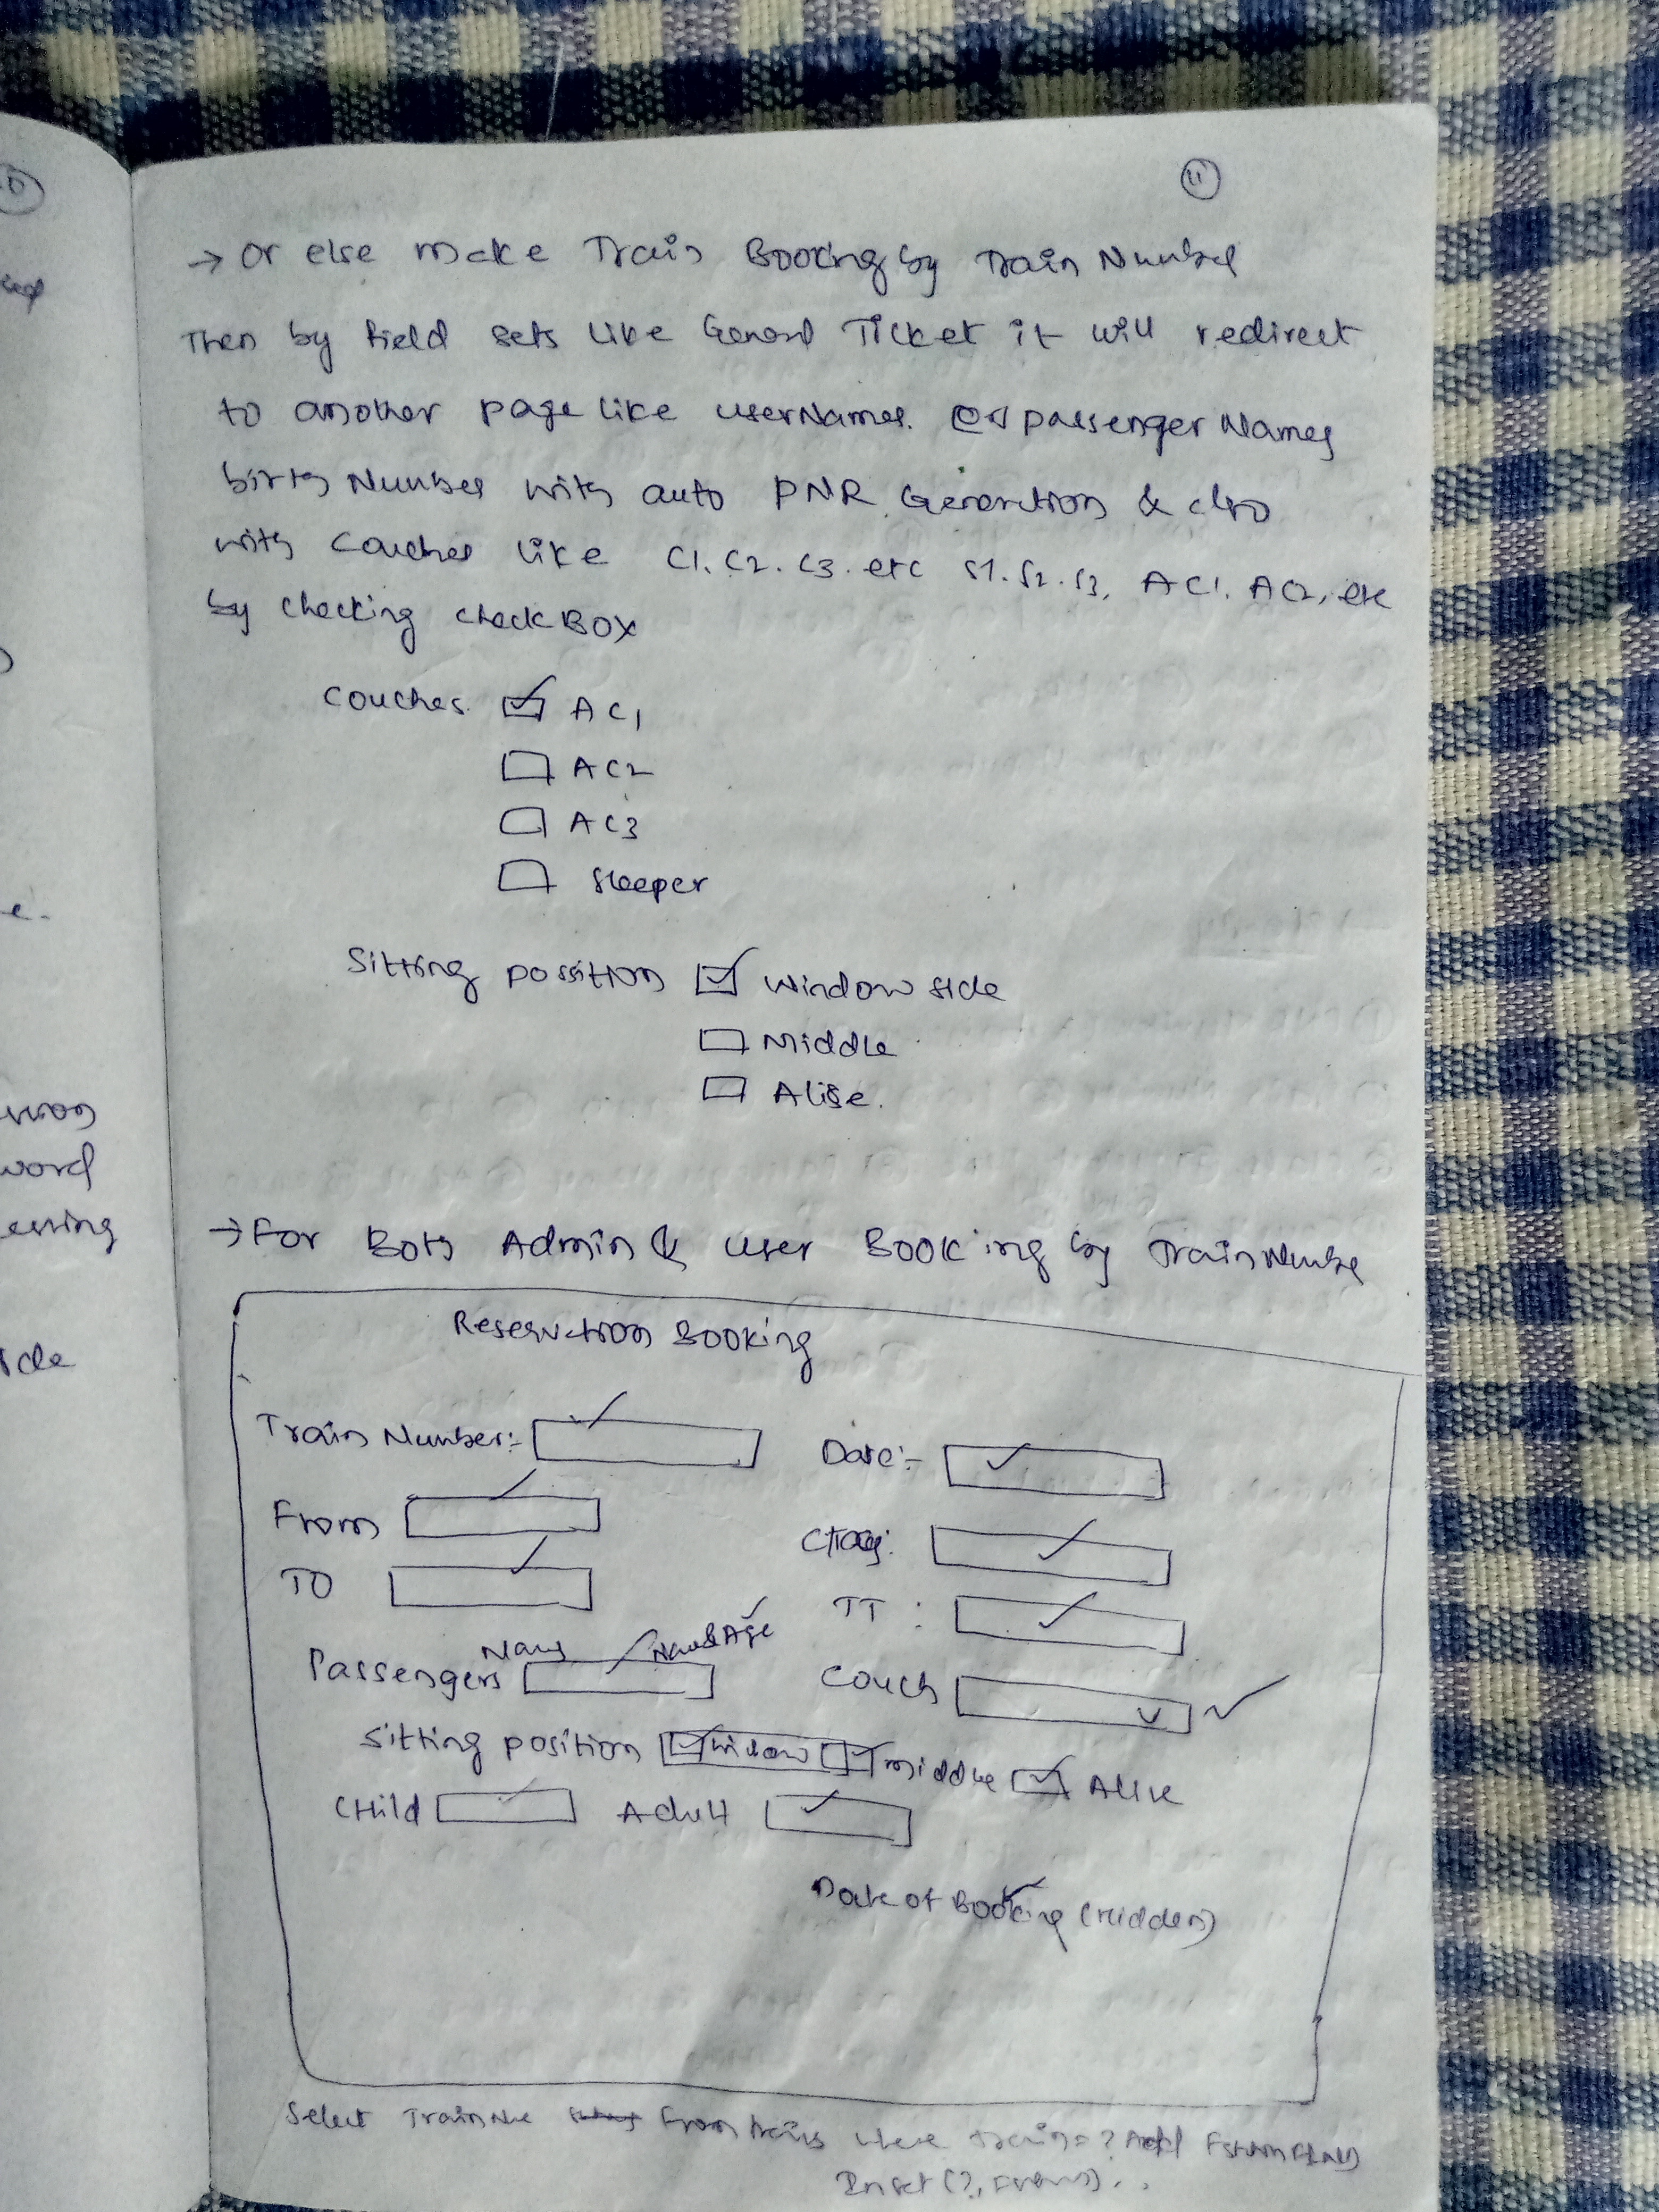 11
→ Or else make Train Booking by Train Number
Then by field sets like General Ticket it will redirect
to another page like userNames. passenger Names
birth Number with auto PNR Generation & also
with Couches like C1. C2. C3. etc S1. S2. S3, AC1. AC2, etc
by checking checkBOX
Couches. AC1
AC2
AC3
Sleeper
Sitting possition window side
Middle
Alise.
→ For Both Admin & user Booking by Train Number
Reservation Booking
Train Number:- Date:-
From Class:
TO TT :
Passengers Name Name & Age Couch
Sitting position window middle Alise
CHild Adult
Date of Booking (Hidden)
Select TrainNo From trains where train=?
Inset (?,
wrong
word
essing
ide
e.